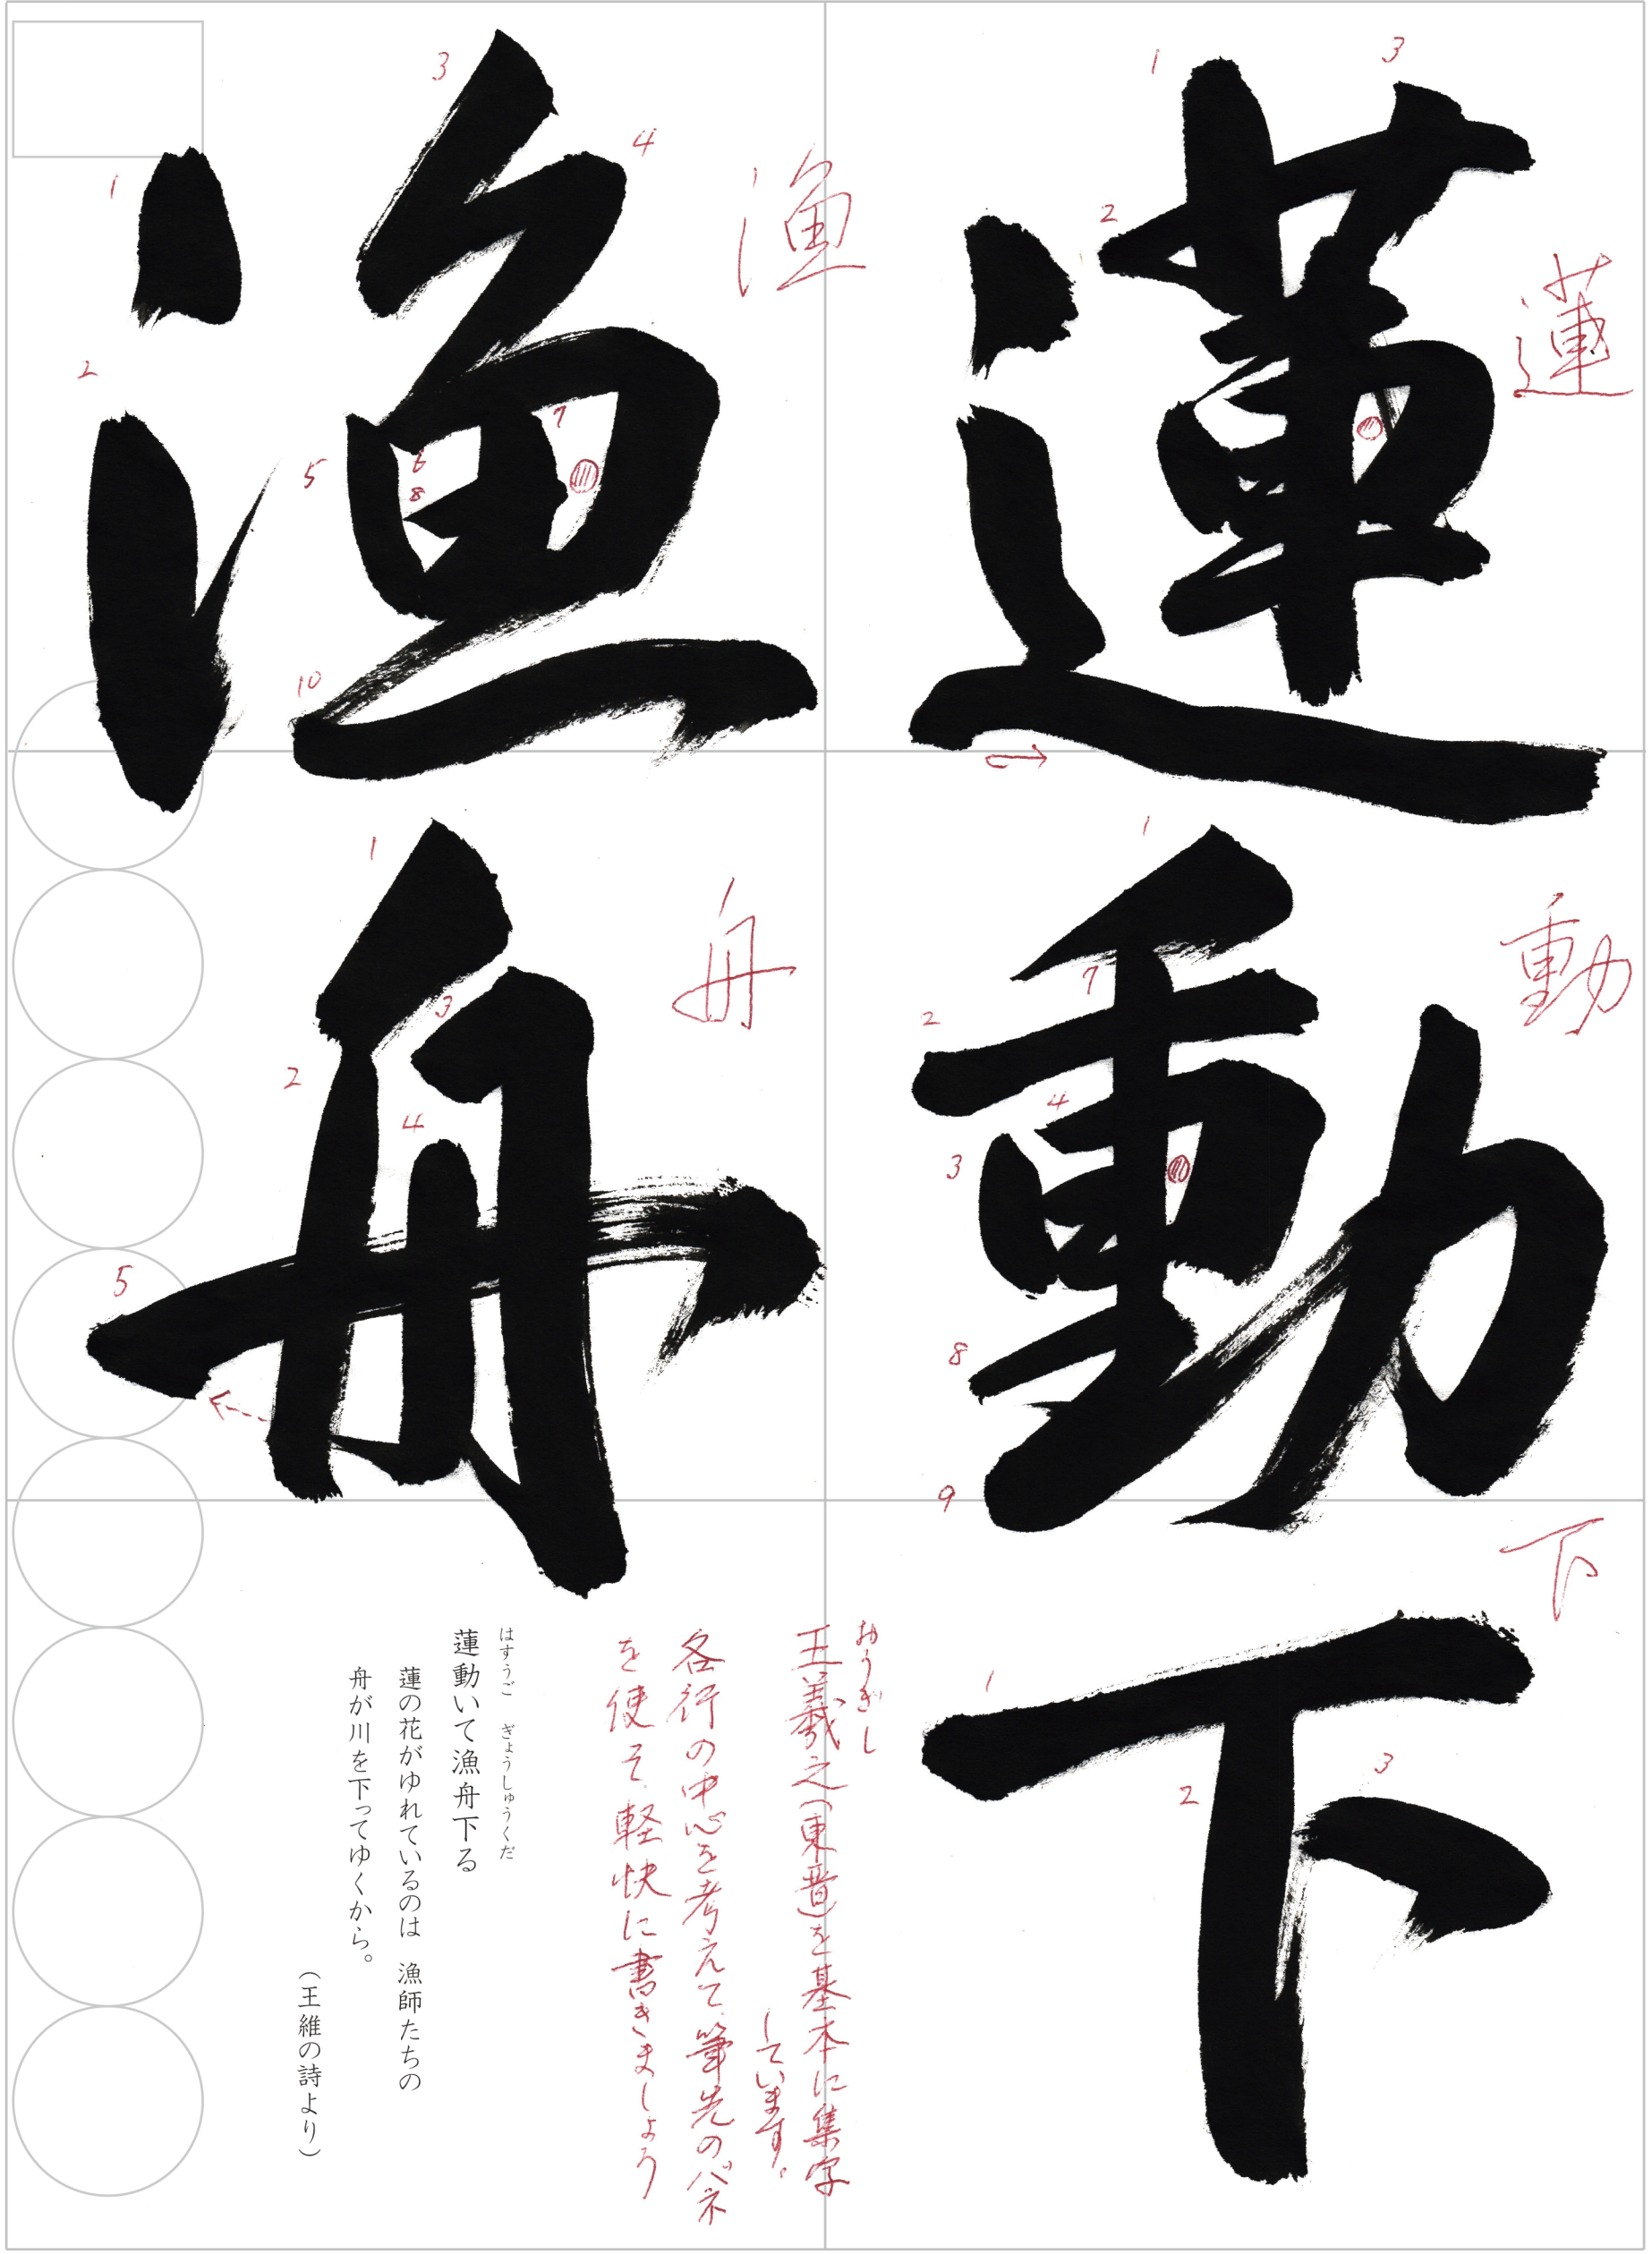 蓮動下
漁舟
蓮
動
下
漁
舟
おうぎし
王羲之(東晋)を基本に集字
しています。
各行の中心を考えて、筆先のバネ
を使って、軽快に書きましょう
はすうご ぎょうしゅうくだ
蓮動いて漁舟下る
蓮の花がゆれているのは 漁師たちの
舟が川を下ってゆくから。
(王維の詩より)